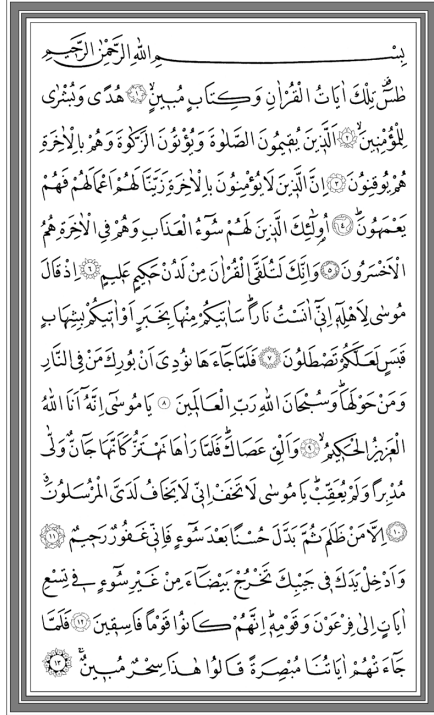 بِسْمِ اللهِ الرَّحْمٰنِ الرَّحِيمِ
طٰسٓ تِلْكَ اٰيَاتُ الْقُرْاٰنِ وَكِتَابٍ مُبِينٍۙ ﴿١﴾ هُدًى وَبُشْرٰى
لِلْمُؤْمِنِينَۙ ﴿٢﴾ اَلَّذِينَ يُقِيمُونَ الصَّلٰوةَ وَيُؤْتُونَ الزَّكٰوةَ وَهُمْ بِالْاٰخِرَةِ
هُمْ يُوقِنُونَ ﴿٣﴾ اِنَّ الَّذِينَ لَا يُؤْمِنُونَ بِالْاٰخِرَةِ زَيَّنَّا لَهُمْ اَعْمَالَهُمْ فَهُمْ
يَعْمَهُونَۜ ﴿٤﴾ اُو۬لٰٓئِكَ الَّذِينَ لَهُمْ سُٓوءُ الْعَذَابِ وَهُمْ فِي الْاٰخِرَةِ هُمُ
الْاَخْسَرُونَ ﴿٥﴾ وَاِنَّكَ لَتُلَقَّى الْقُرْاٰنَ مِنْ لَدُنْ حَكِيمٍ عَلِيمٍ ﴿٦﴾ اِذْ قَالَ
مُوسٰى لِاَهْلِهٖٓ اِنِّٓي اٰنَسْتُ نَارًاۜ سَاٰتِيكُمْ مِنْهَا بِخَبَرٍ اَوْ اٰتِيكُمْ بِشِهَابٍ
قَبَسٍ لَعَلَّكُمْ تَصْطَلُونَ ﴿٧﴾ فَلَمَّا جَٓاءَهَا نُودِيَ اَنْ بُورِكَ مَنْ فِي النَّارِ
وَمَنْ حَوْلَهَاۜ وَسُبْحَانَ اللهِ رَبِّ الْعَالَمِينَ ﴿٨﴾ يَا مُوسٰٓى اِنَّهُٓ اَنَا اللهُ
الْعَزِيزُ الْحَكِيمُۙ ﴿٩﴾ وَاَلْقِ عَصَاكَۜ فَلَمَّا رَاٰهَا تَهْتَزُّ كَاَنَّهَا جَٓانٌّ وَلّٰى
مُدْبِرًا وَلَمْ يُعَقِّبْۜ يَا مُوسٰى لَا تَخَفْ اِنِّي لَا يَخَافُ لَدَيَّ الْمُرْسَلُونَۗ
﴿١٠﴾ اِلَّا مَنْ ظَلَمَ ثُمَّ بَدَّلَ حُسْنًا بَعْدَ سُٓوءٍ فَاِنِّي غَفُورٌ رَحِيمٌ ﴿١١﴾
وَاَدْخِلْ يَدَكَ فِي جَيْبِكَ تَخْرُجْ بَيْضَٓاءَ مِنْ غَيْرِ سُٓوءٍ فِي تِسْعِ
اٰيَاتٍ اِلٰى فِرْعَوْنَ وَقَوْمِهٖۜ اِنَّهُمْ كَانُوا قَوْمًا فَاسِقِينَ ﴿١٢﴾ فَلَمَّا
جَٓاءَتْهُمْ اٰيَاتُنَا مُبْصِرَةً قَالُوا هٰذَا سِحْرٌ مُبِينٌۚ ﴿١٣﴾